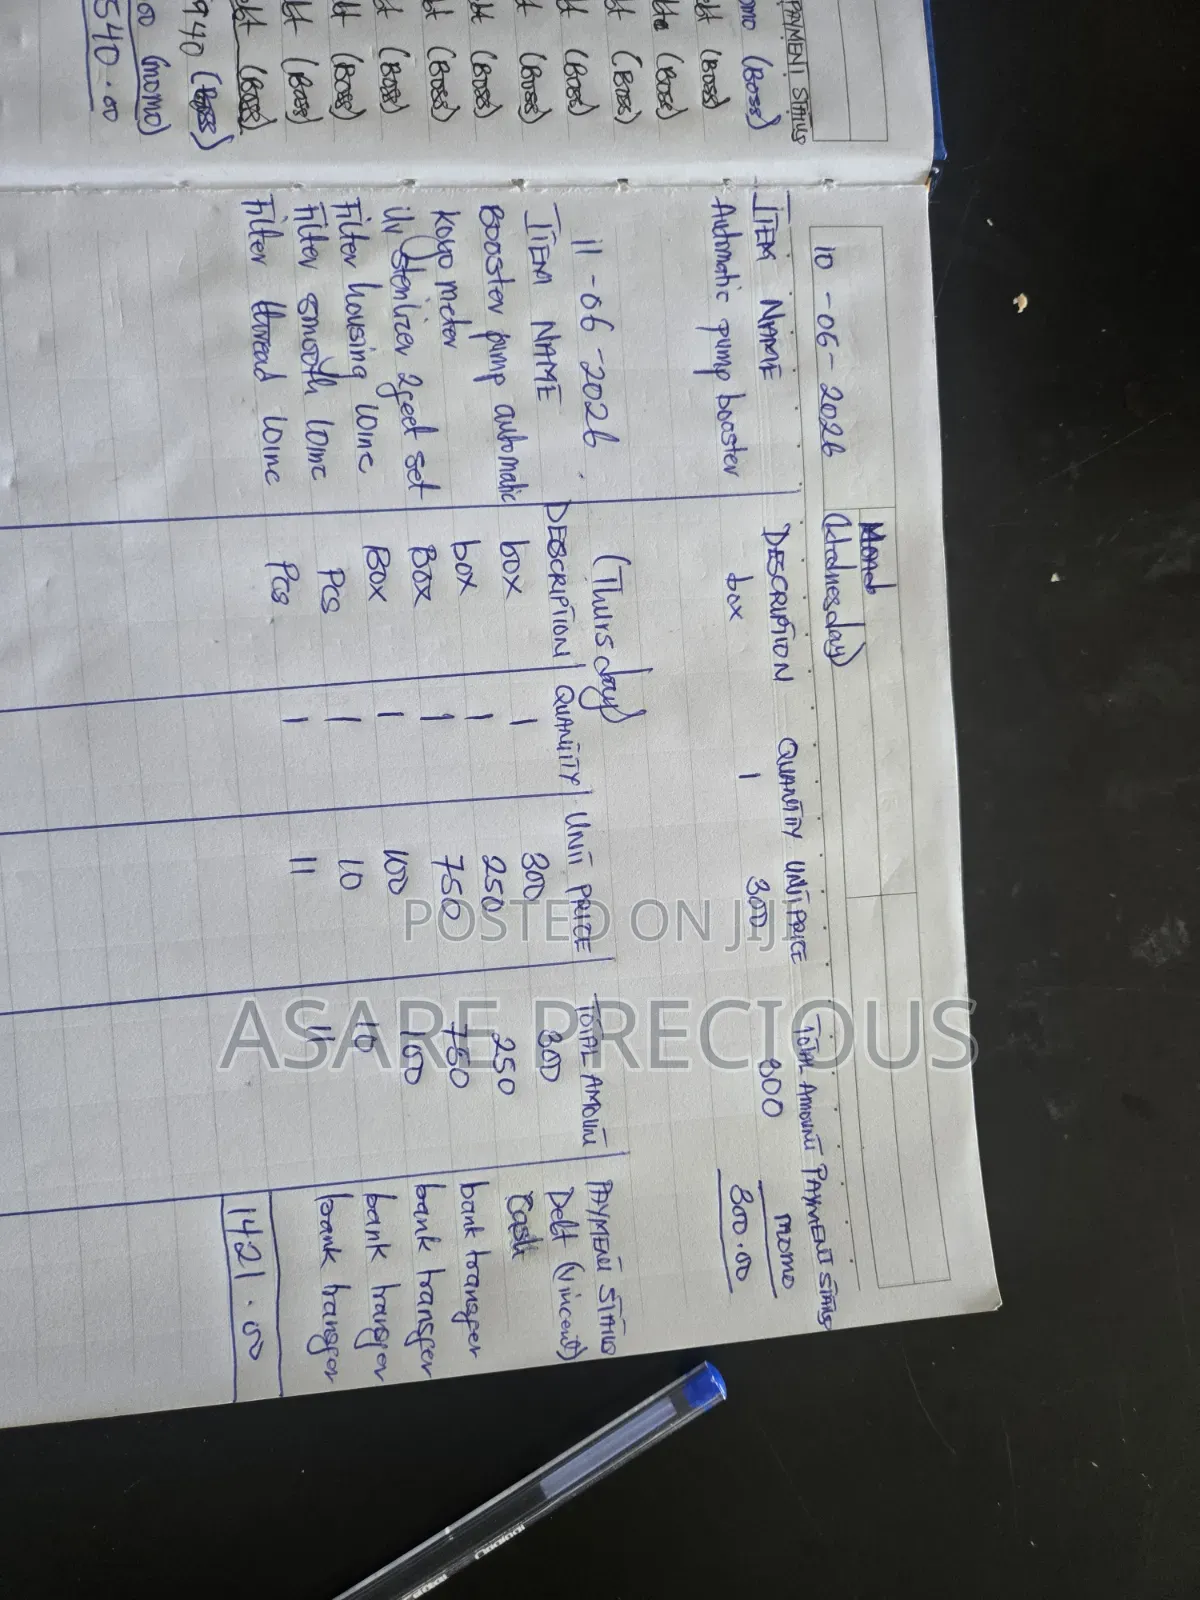 PAYMENT STATUS
omo (Boss)
bt (Boss)
bt (Boss)
bt (Boss)
bt (Boss)
bt (Boss)
bt (Boss)
bt (Boss)
bt (Boss)
bt (Boss)
bt (Boss)
bt (Boss)
940 (Boss)
00 (momo)
540.00
Mond
10-06-2026 (Wednesday)
ITEM NAME DESCRIPTION QUANTITY UNIT PRICE TOTAL AMOUNT PAYMENT STATUS
Automatic pump booster box 1 300 300 momo
300.00
11-06-2026. (Thursday)
ITEM NAME DESCRIPTION QUANTITY UNIT PRICE TOTAL AMOUNT PAYMENT STATUS
Booster pump automatic box 1 300 300 Debt (Vincent)
Koyo meter box 1 250 250 Cash
Uv sterilizer 2feet set Box 1 750 750 bank transfer
Filter housing 10inc Box 1 100 100 bank transfer
Filter smooth 10inc Pcs 1 10 10 bank transfer
Filter thread 10inc Pcs 1 11 11 bank transfer
1421.00
POSTED ON JIJI
ASARE PRECIOUS